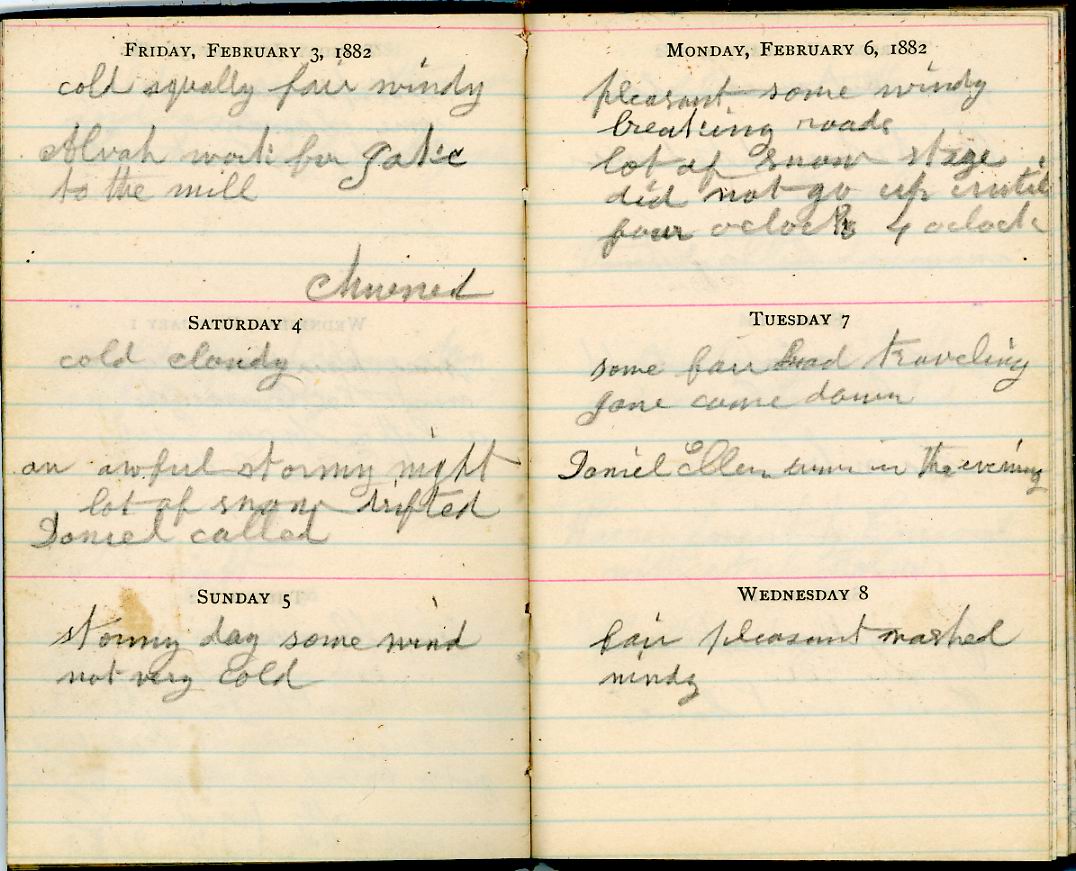 FRIDAY, FEBRUARY 3, 1882
cold squally fair windy
Alvah work for
to the mill
Churned
SATURDAY 4
cold cloudy
an awful stormy night
lot of snow drifted
Daniel called
SUNDAY 5
stormy day some wind
not very cold
MONDAY, FEBRUARY 6, 1882
pleasant some windy
breaking roads
lot of snow stage
did not go up until
four oclock 4 oclock
TUESDAY 7
some fair bad traveling
came down
Daniel Ellen in the evening
WEDNESDAY 8
fair pleasant washed
windy